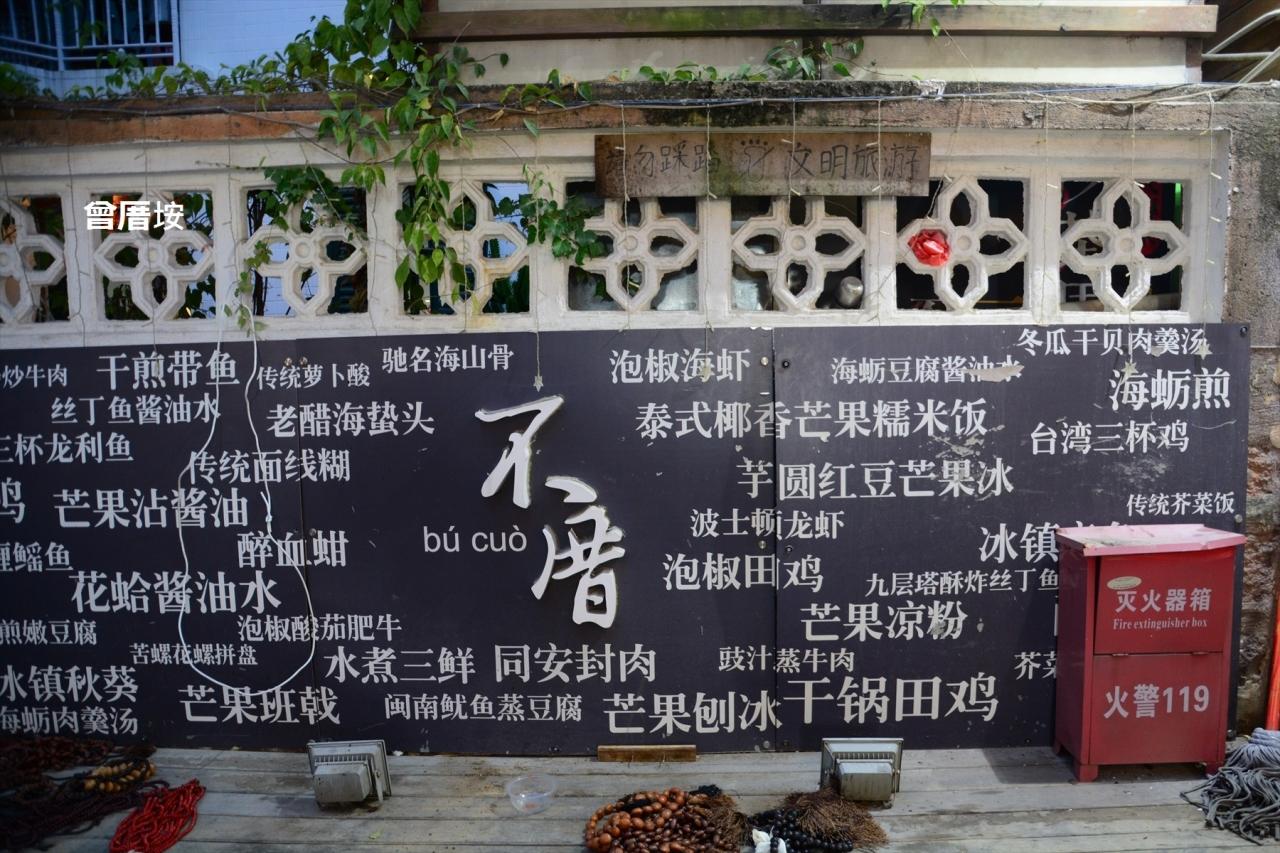 请勿踩踏 文明旅游
曾厝垵
冬瓜干贝肉羹汤
炒牛肉
干煎带鱼
传统萝卜酸
驰名海山骨
泡椒海虾
海蛎豆腐酱油水
海蛎煎
丝丁鱼酱油水
老醋海蜇头
泰式椰香芒果糯米饭
台湾三杯鸡
三杯龙利鱼
传统面线糊
芋圆红豆芒果冰
鸡
芒果沾酱油
传统芥菜饭
不厝
bú cuò
波士顿龙虾
冰镇
鳗鱼
醉血蚶
泡椒田鸡
九层塔酥炸丝丁鱼
花蛤酱油水
芒果凉粉
灭火器箱
Fire extinguisher box
煎嫩豆腐
泡椒酸茄肥牛
苦螺花螺拼盘
水煮三鲜
同安封肉
豉汁蒸牛肉
芥菜
冰镇秋葵
芒果班戟
闽南鱿鱼蒸豆腐
芒果刨冰
干锅田鸡
火警119
海蛎肉羹汤